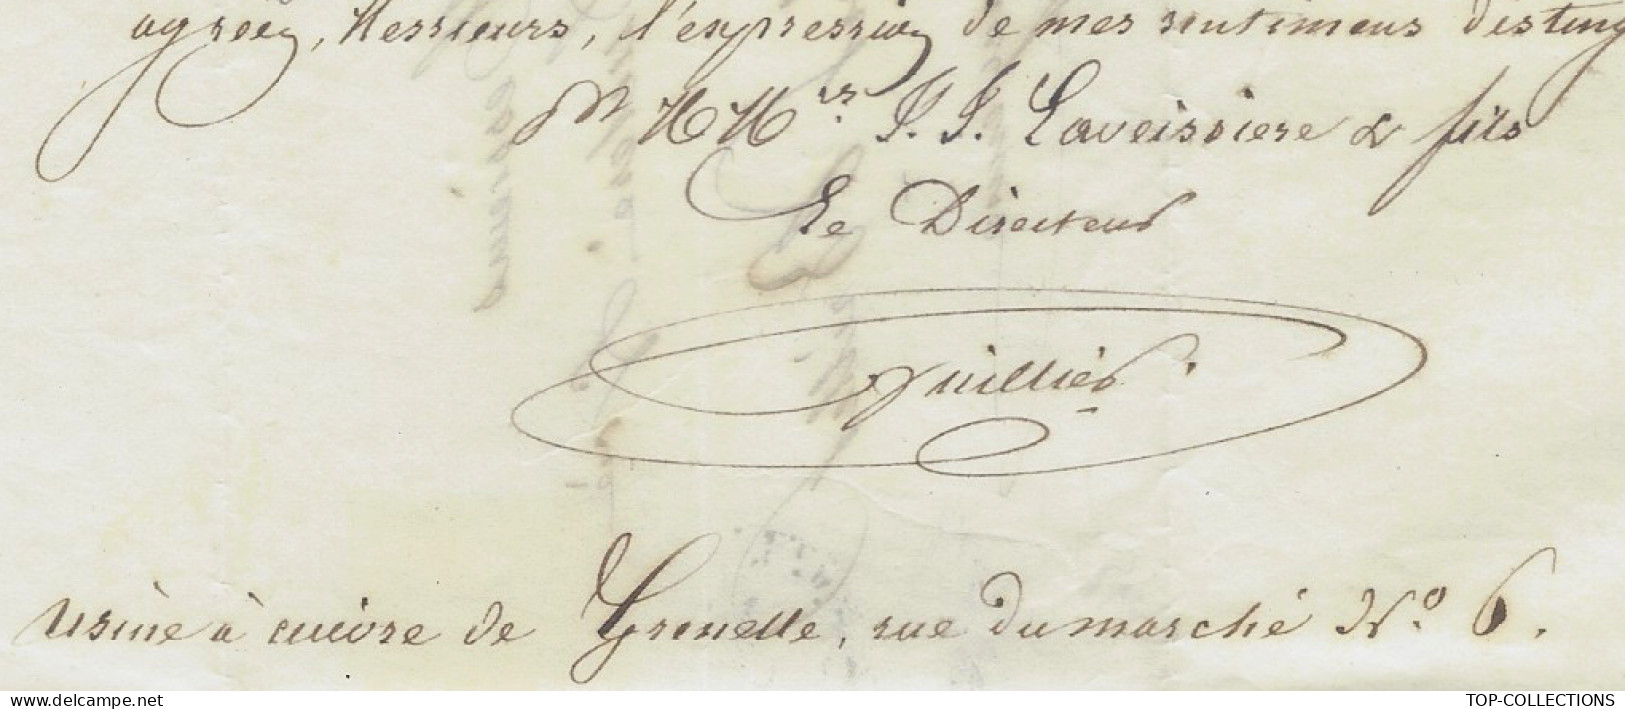 agréez, Messieurs, l'expression de mes sentimens disting
Pr MMrs J. J. Laveissiere & fils
Le Directeur
usine à cuivre de Grenelle, rue du marché No. 6.
TOP-COLLECTIONS